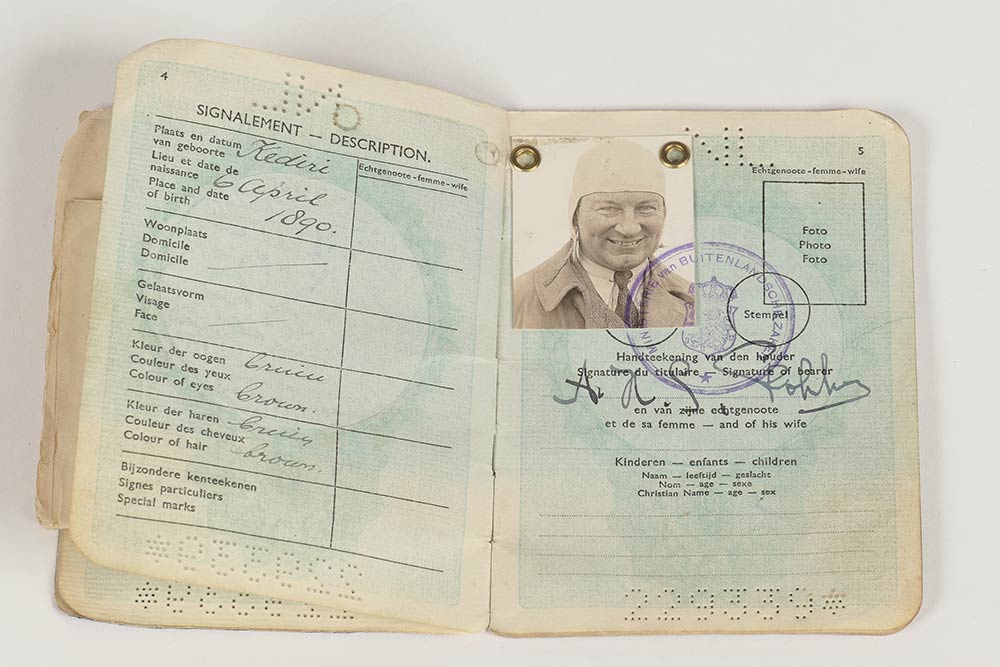 4
SIGNALEMENT — DESCRIPTION.
Plaats en datum
van geboorte
Lieu et date de
naissance
Place and date
of birth
Kediri
6 April
1890.
Echtgenoote-femme-wife
Woonplaats
Domicile
Domicile
Gelaatsvorm
Visage
Face
Kleur der oogen
Couleur des yeux
Colour of eyes
bruin
brown.
Kleur der haren
Couleur des cheveux
Colour of hair
bruin
brown.
Bijzondere kenteekenen
Signes particuliers
Special marks
5
Echtgenoote-femme-wife
Foto
Photo
Foto
Stempel
MINISTERIE van BUITENLANDSCHE ZAKEN
Handteekening van den houder
Signature du titulaire — Signature of bearer
A. H. G. Fokker
en van zijne echtgenoote
et de sa femme — and of his wife
Kinderen — enfants — children
Naam — leeftijd — geslacht
Nom — age — sexe
Christian Name — age — sex